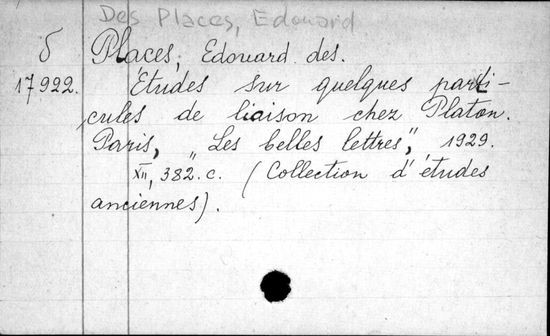 Des Places, Edouard
б Places, Edouard des.
17922. Études sur quelques parti-
cules de liaison chez Platon.
Paris, „Les belles lettres", 1929.
XII, 382. c. (Collection d'études
anciennes).